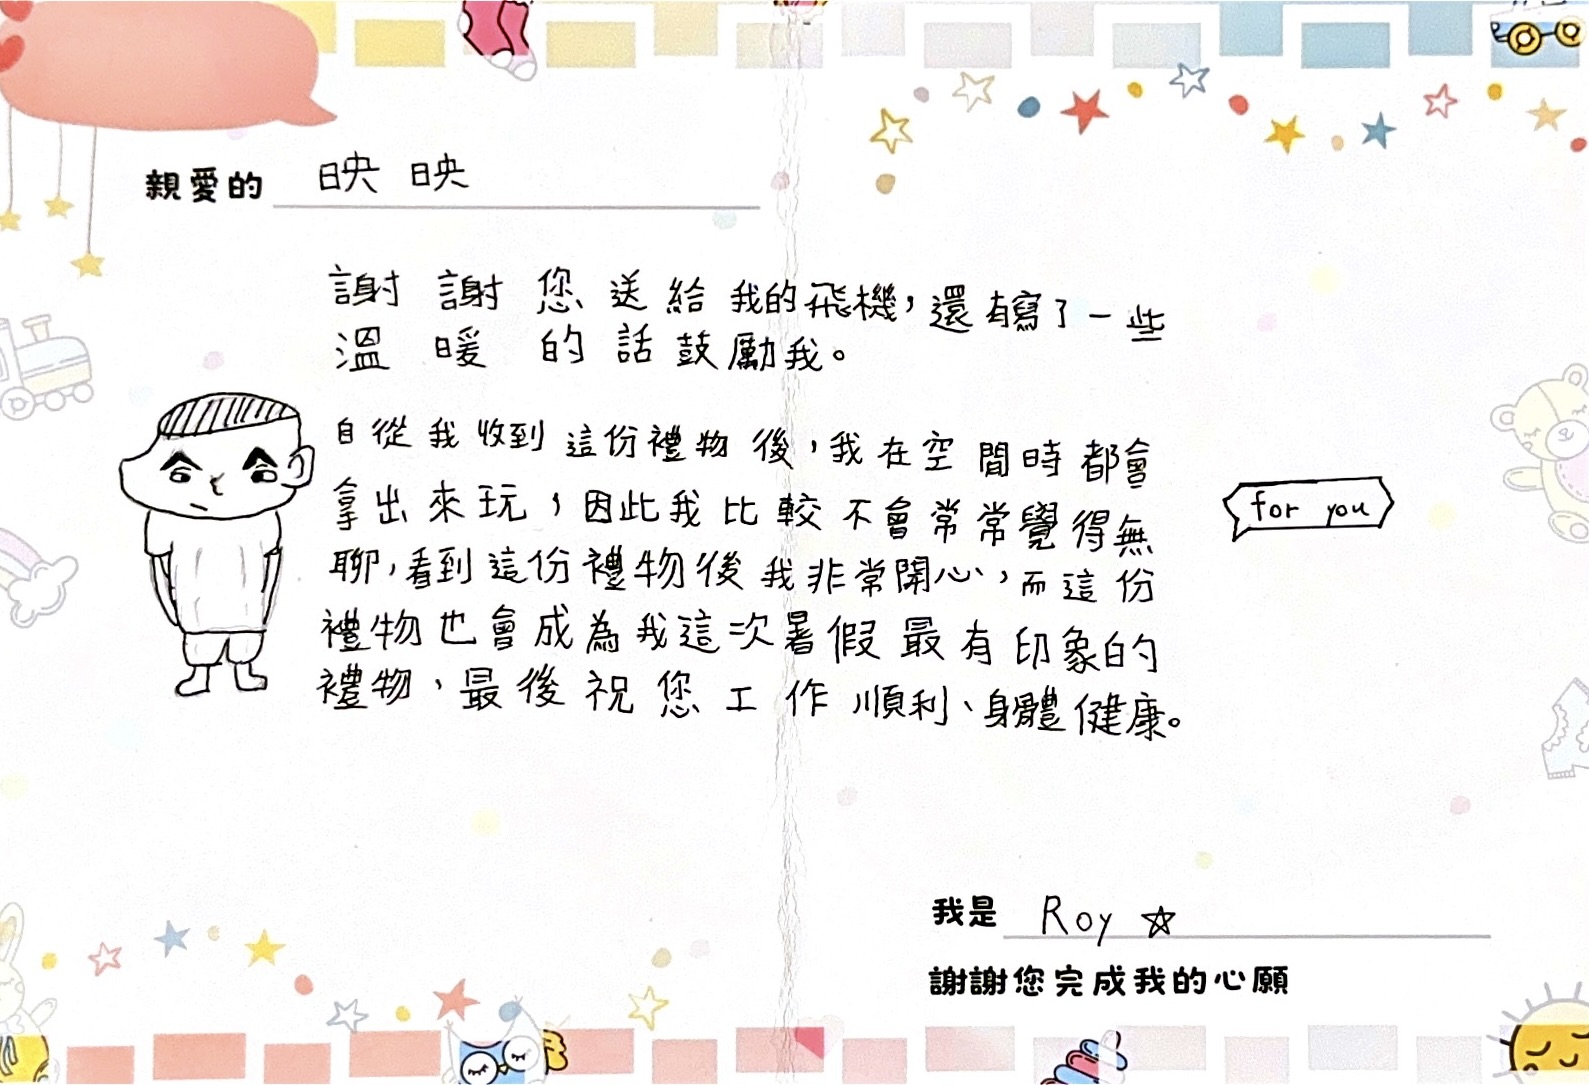 親愛的 映映
謝謝您送給我的飛機，還有寫了一些
溫暖的話鼓勵我。
自從我收到這份禮物後，我在空閒時都會
拿出來玩，因此我比較不會常常覺得無
聊，看到這份禮物後我非常開心，而這份
禮物也會成為我這次暑假最有印象的
禮物，最後祝您工作順利、身體健康。
for you
我是 Roy ☆
謝謝您完成我的心願